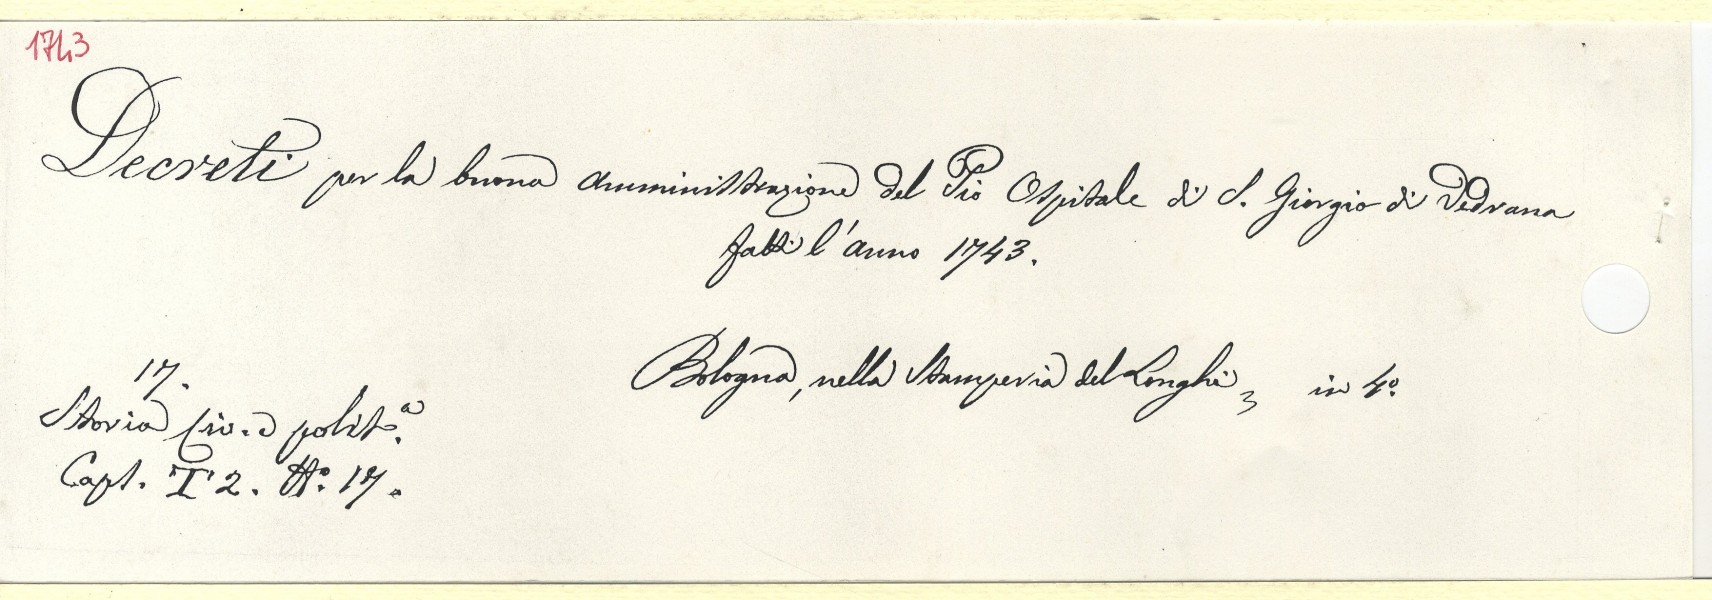 1743
Decreti per la buona amministrazione del Pio Ospitale di S. Giorgio di Vedrana
fatti l'anno 1743.
Bologna, nella Stamperia del Longhi, in 4°.
17.
Storia civ. e polit.ª
Capt. I 2. N°. 17.